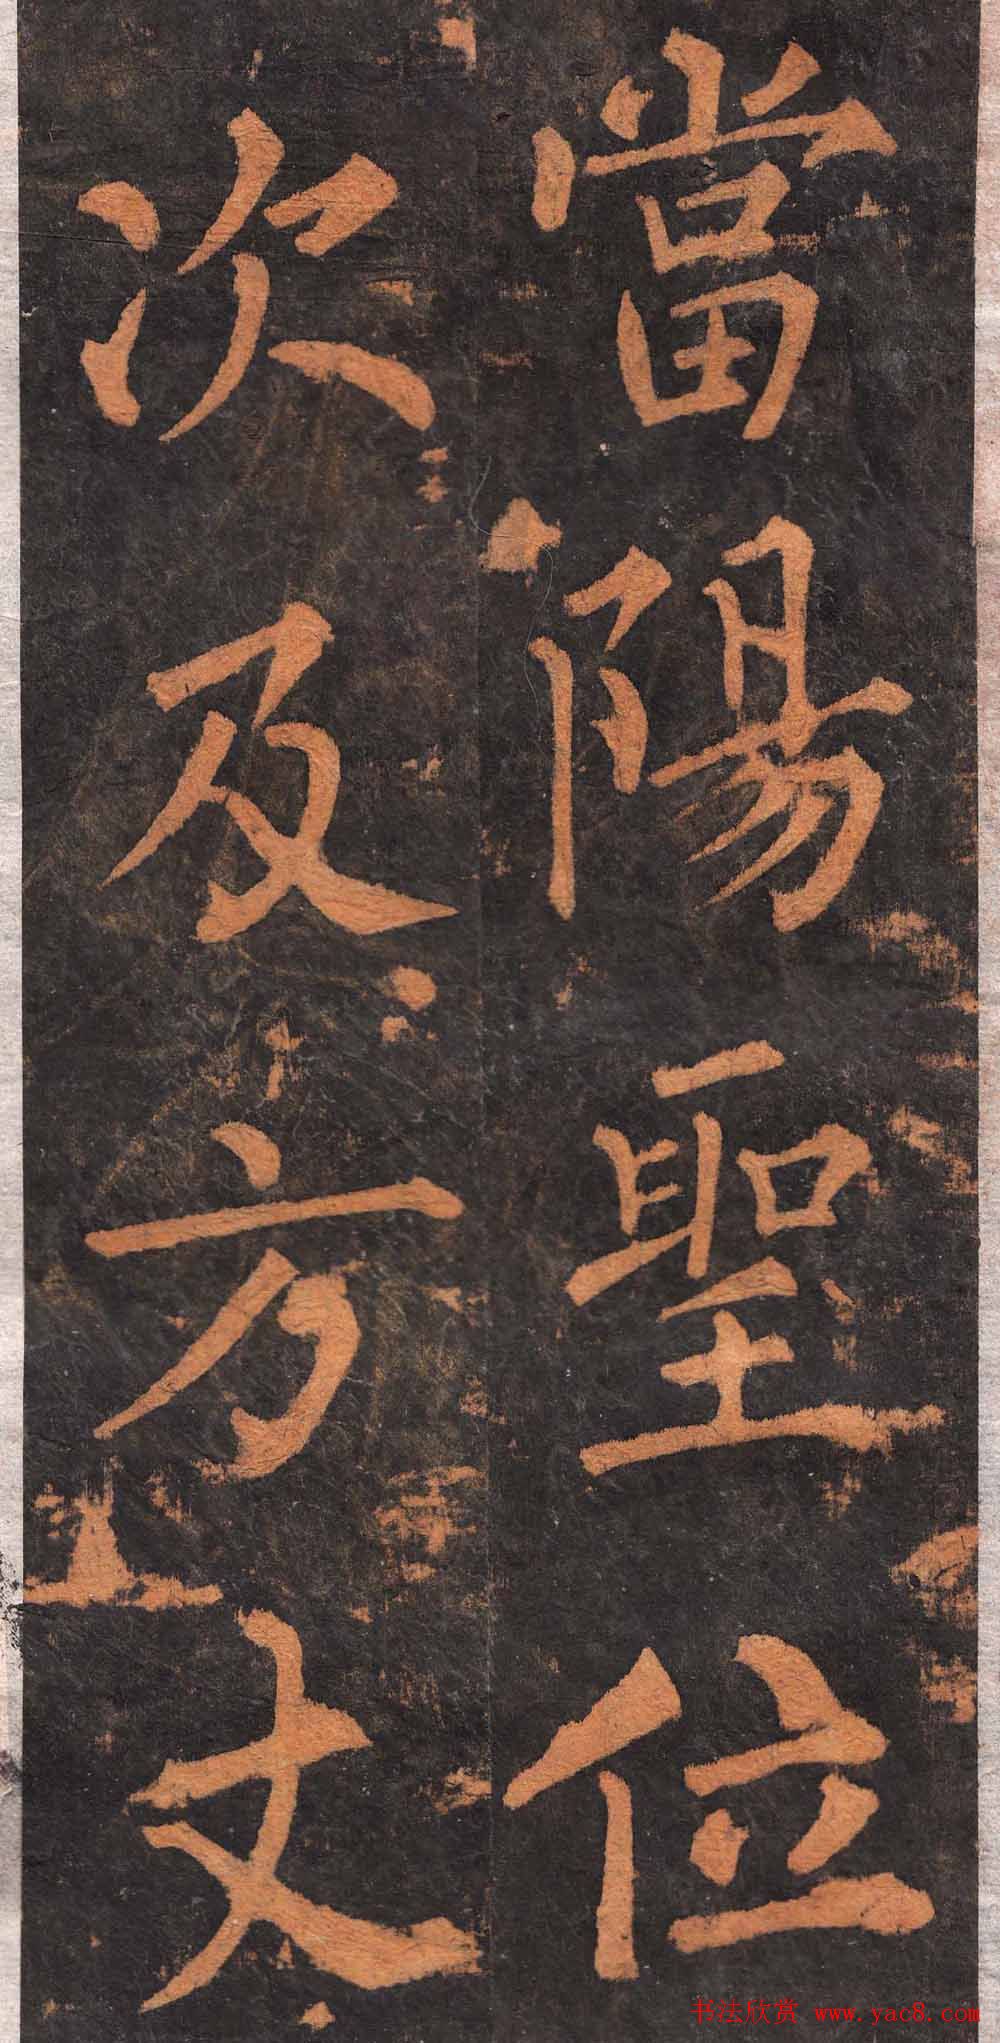 當陽聖位
次及方丈
书法欣赏 www.yac8.com